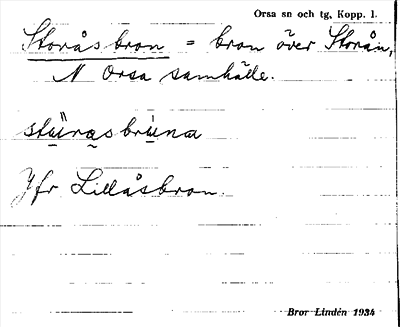 Orsa sn och tg, Kopp. l.
Storåsbron = bron över Storån,
N Orsa samhälle.
stu̠̇ra̠sbru̠na
Jfr Lillåsbron.
Bror Lindén 1934